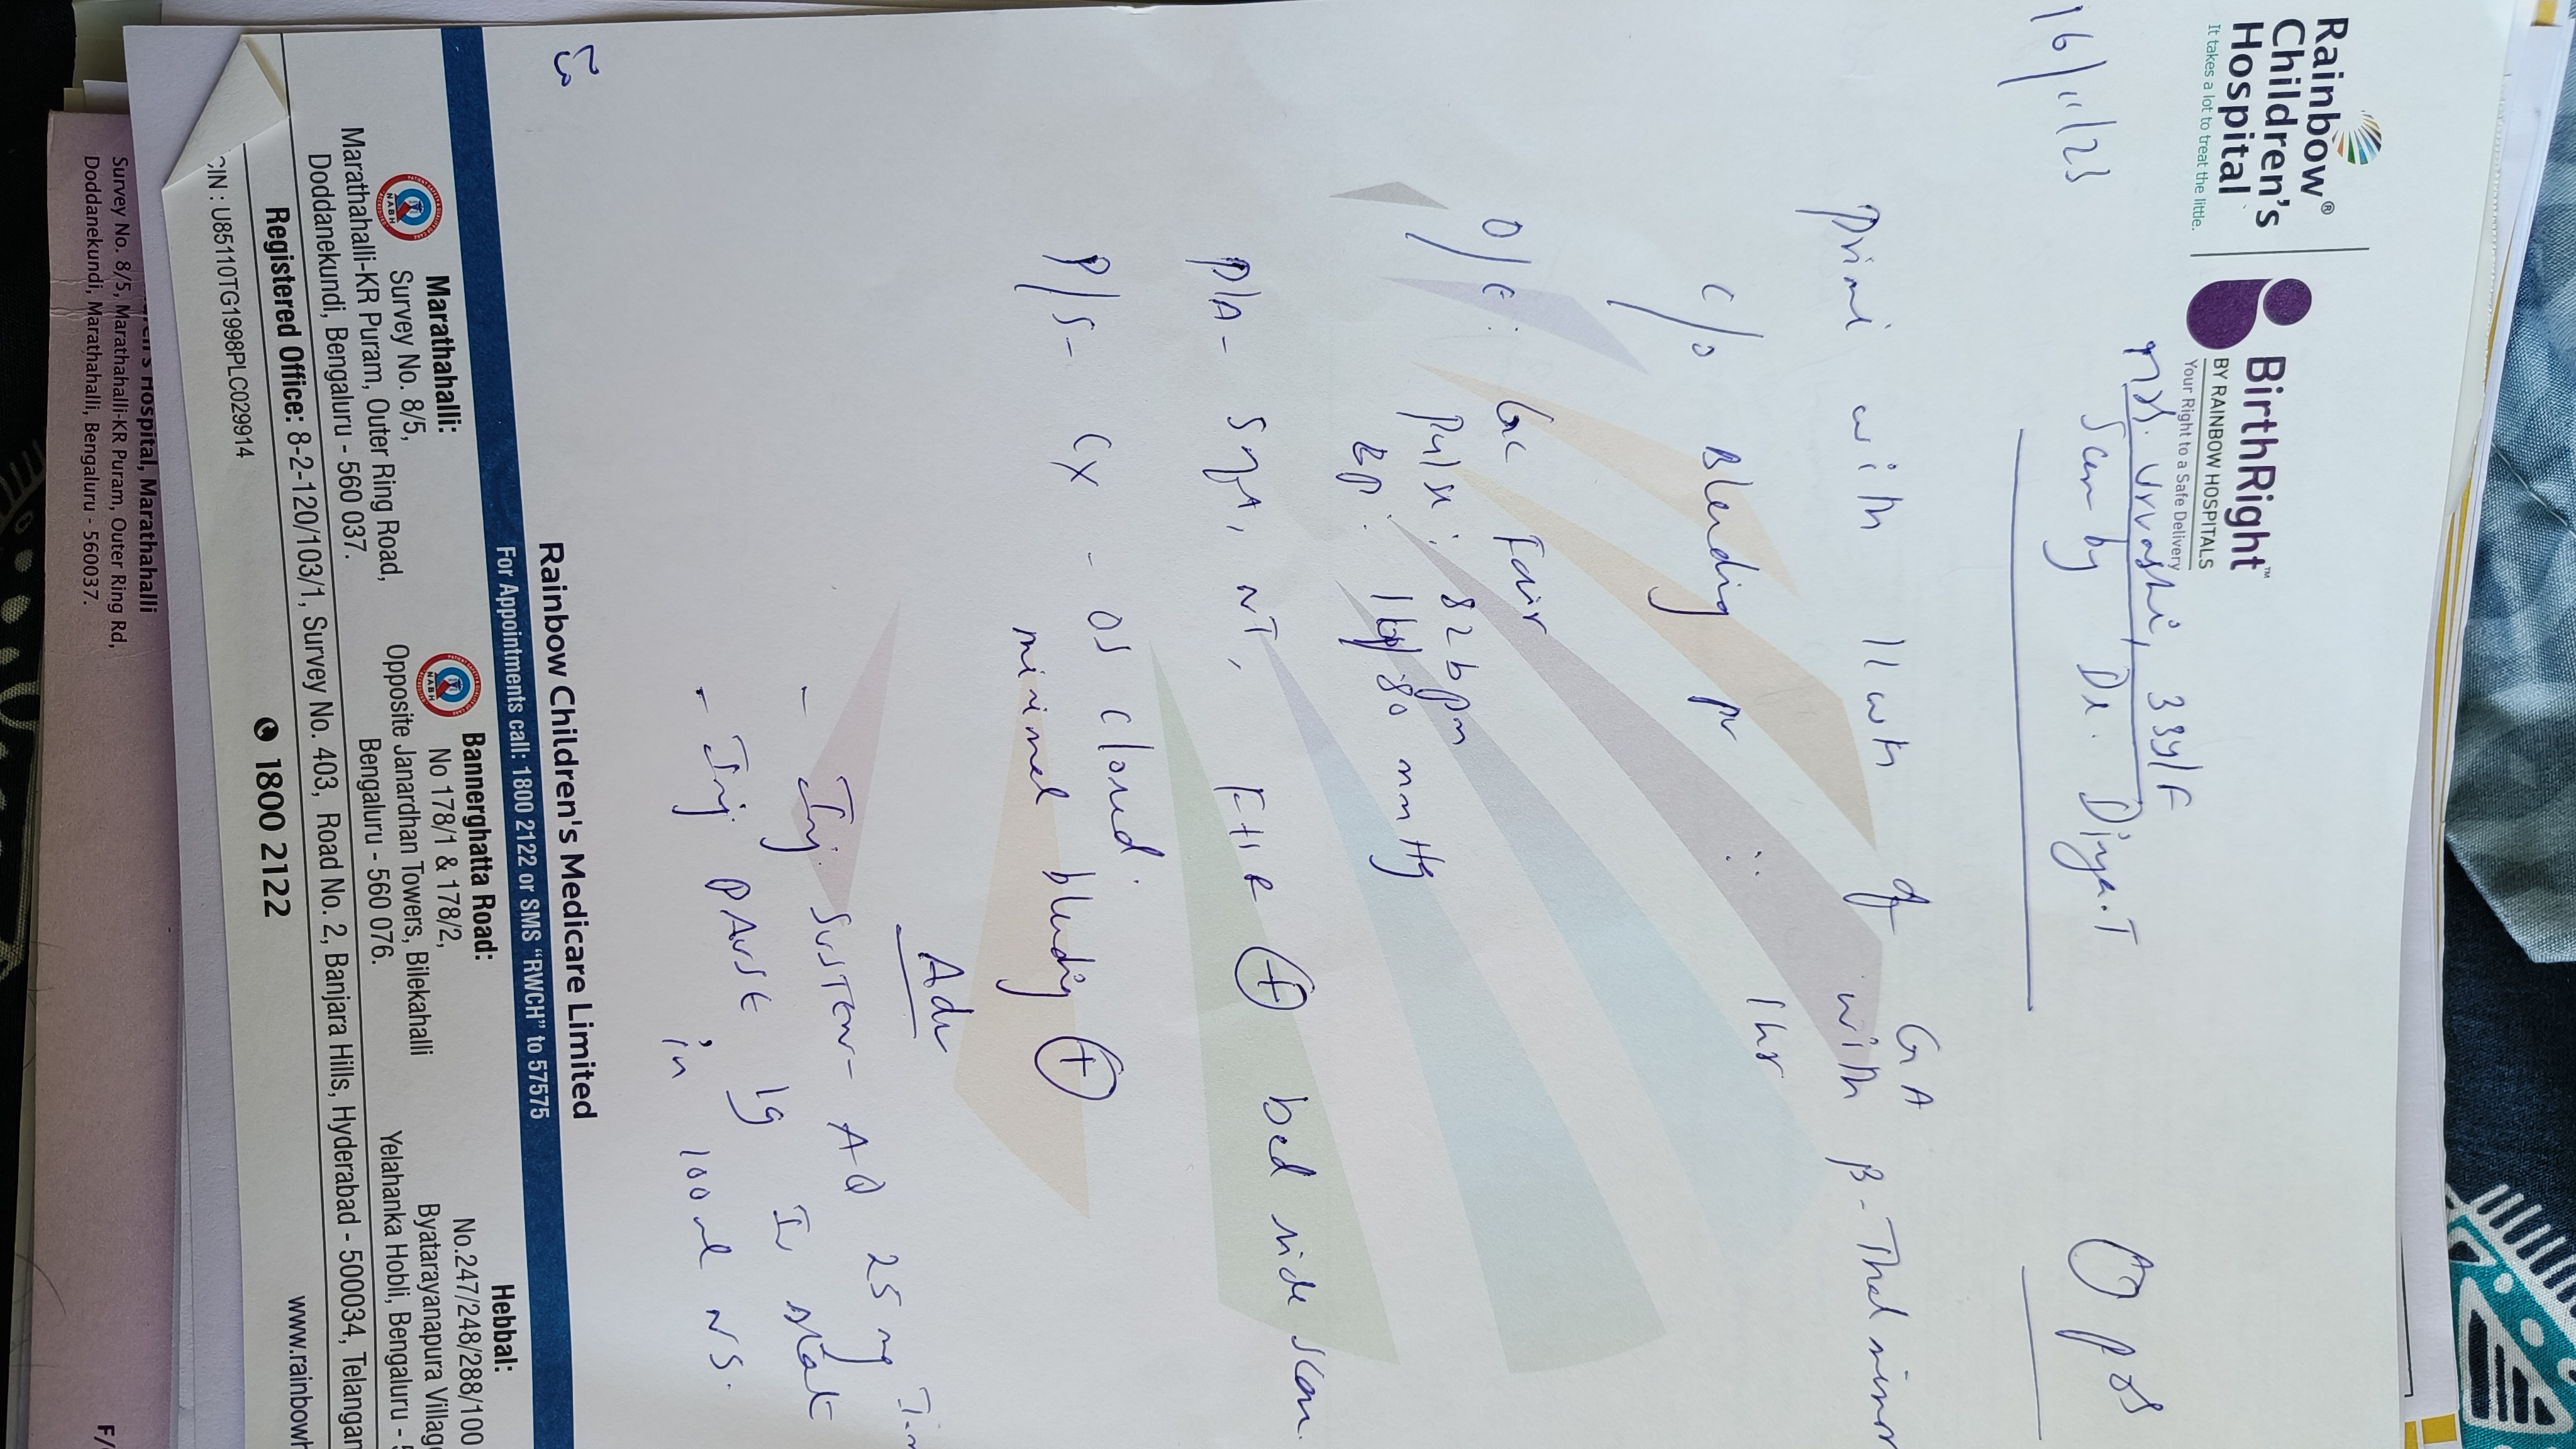 Rainbow®
Children's
Hospital
It takes a lot to treat the little.
BirthRight™
BY RAINBOW HOSPITALS
Your Right to a Safe Delivery
Mrs. Urvashi, 33y/F
16/11/23
Seen by Dr. Divya.T
Primi with 11wk of GA
with β-Thal minor
C/o Bleeding PV : 1hr
O/E: GC Fair
Pulse: 82 bpm
BP: /80 mmHg
P/A- Soft, NT, FHR ⊕ bed side scan.
P/S- CX - OS closed
minimal bleeding ⊕
Adv
- Inj. SUSTEN-AQ 25 mg
- Inj PAUSE 1g IV stat
in 100ml NS.
Rainbow Children's Medicare Limited
For Appointments call: 1800 2122 or SMS "RWCH" to 57575
Marathahalli:
Survey No. 8/5,
Marathahalli-KR Puram, Outer Ring Road,
Doddanekundi, Bengaluru - 560 037.
Bannerghatta Road:
No 178/1 & 178/2,
Opposite Janardhan Towers, Bilekahalli
Bengaluru - 560 076.
Hebbal:
No.247/248/288/100
Byatarayanapura Villag
Yelahanka Hobli, Bengaluru -
Registered Office: 8-2-120/103/1, Survey No. 403, Road No. 2, Banjara Hills, Hyderabad - 500034, Telangan
CIN : U85110TG1998PLC029914
1800 2122
www.rainbowh
Hospital, Marathahalli
Survey No. 8/5, Marathahalli-KR Puram, Outer Ring Rd,
Doddanekundi, Marathahalli, Bengaluru - 560037.